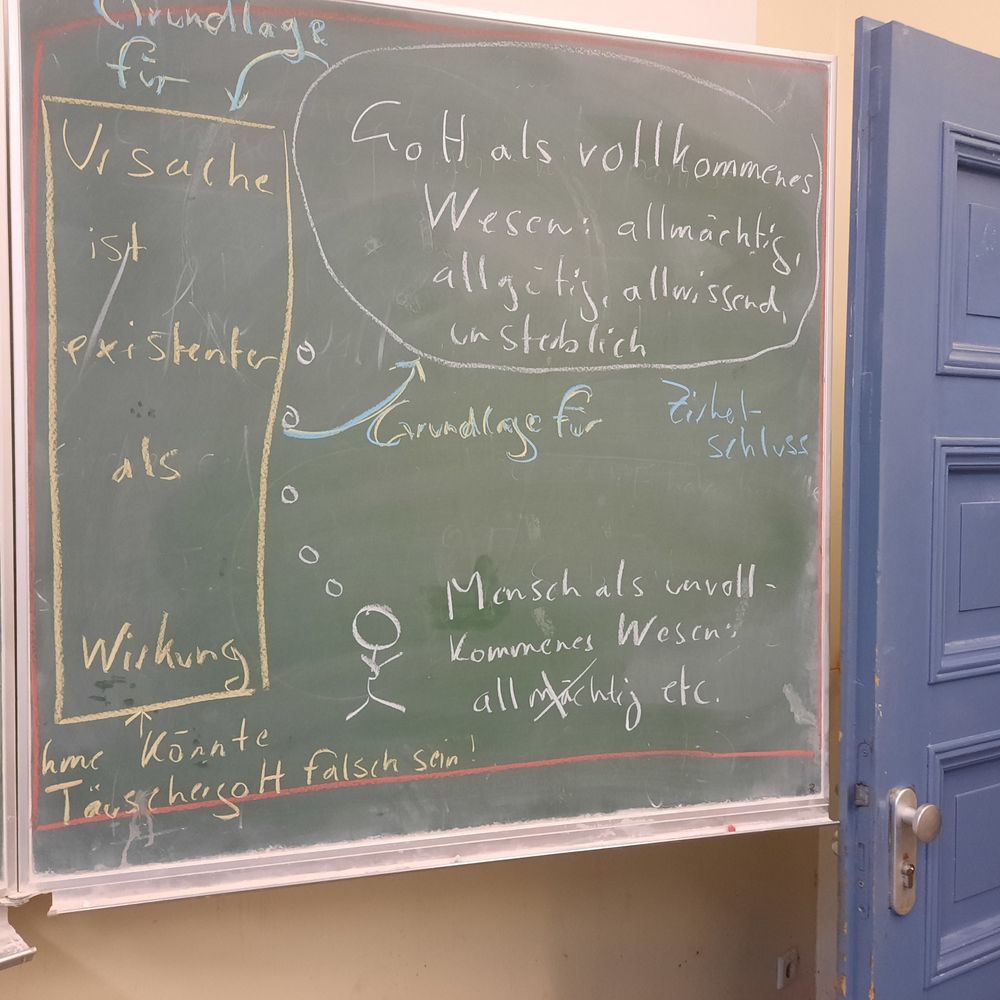 Grundlage
für
Ursache
ist
existenter
als
Wirkung
Gott als vollkommenes
Wesen: allmächtig,
allgütig, allwissend,
unsterblich
Grundlage für
Zirkel-
schluss
Mensch als unvoll-
kommenes Wesen:
allmächtig etc.
könnte
Täuschergott falsch sein!